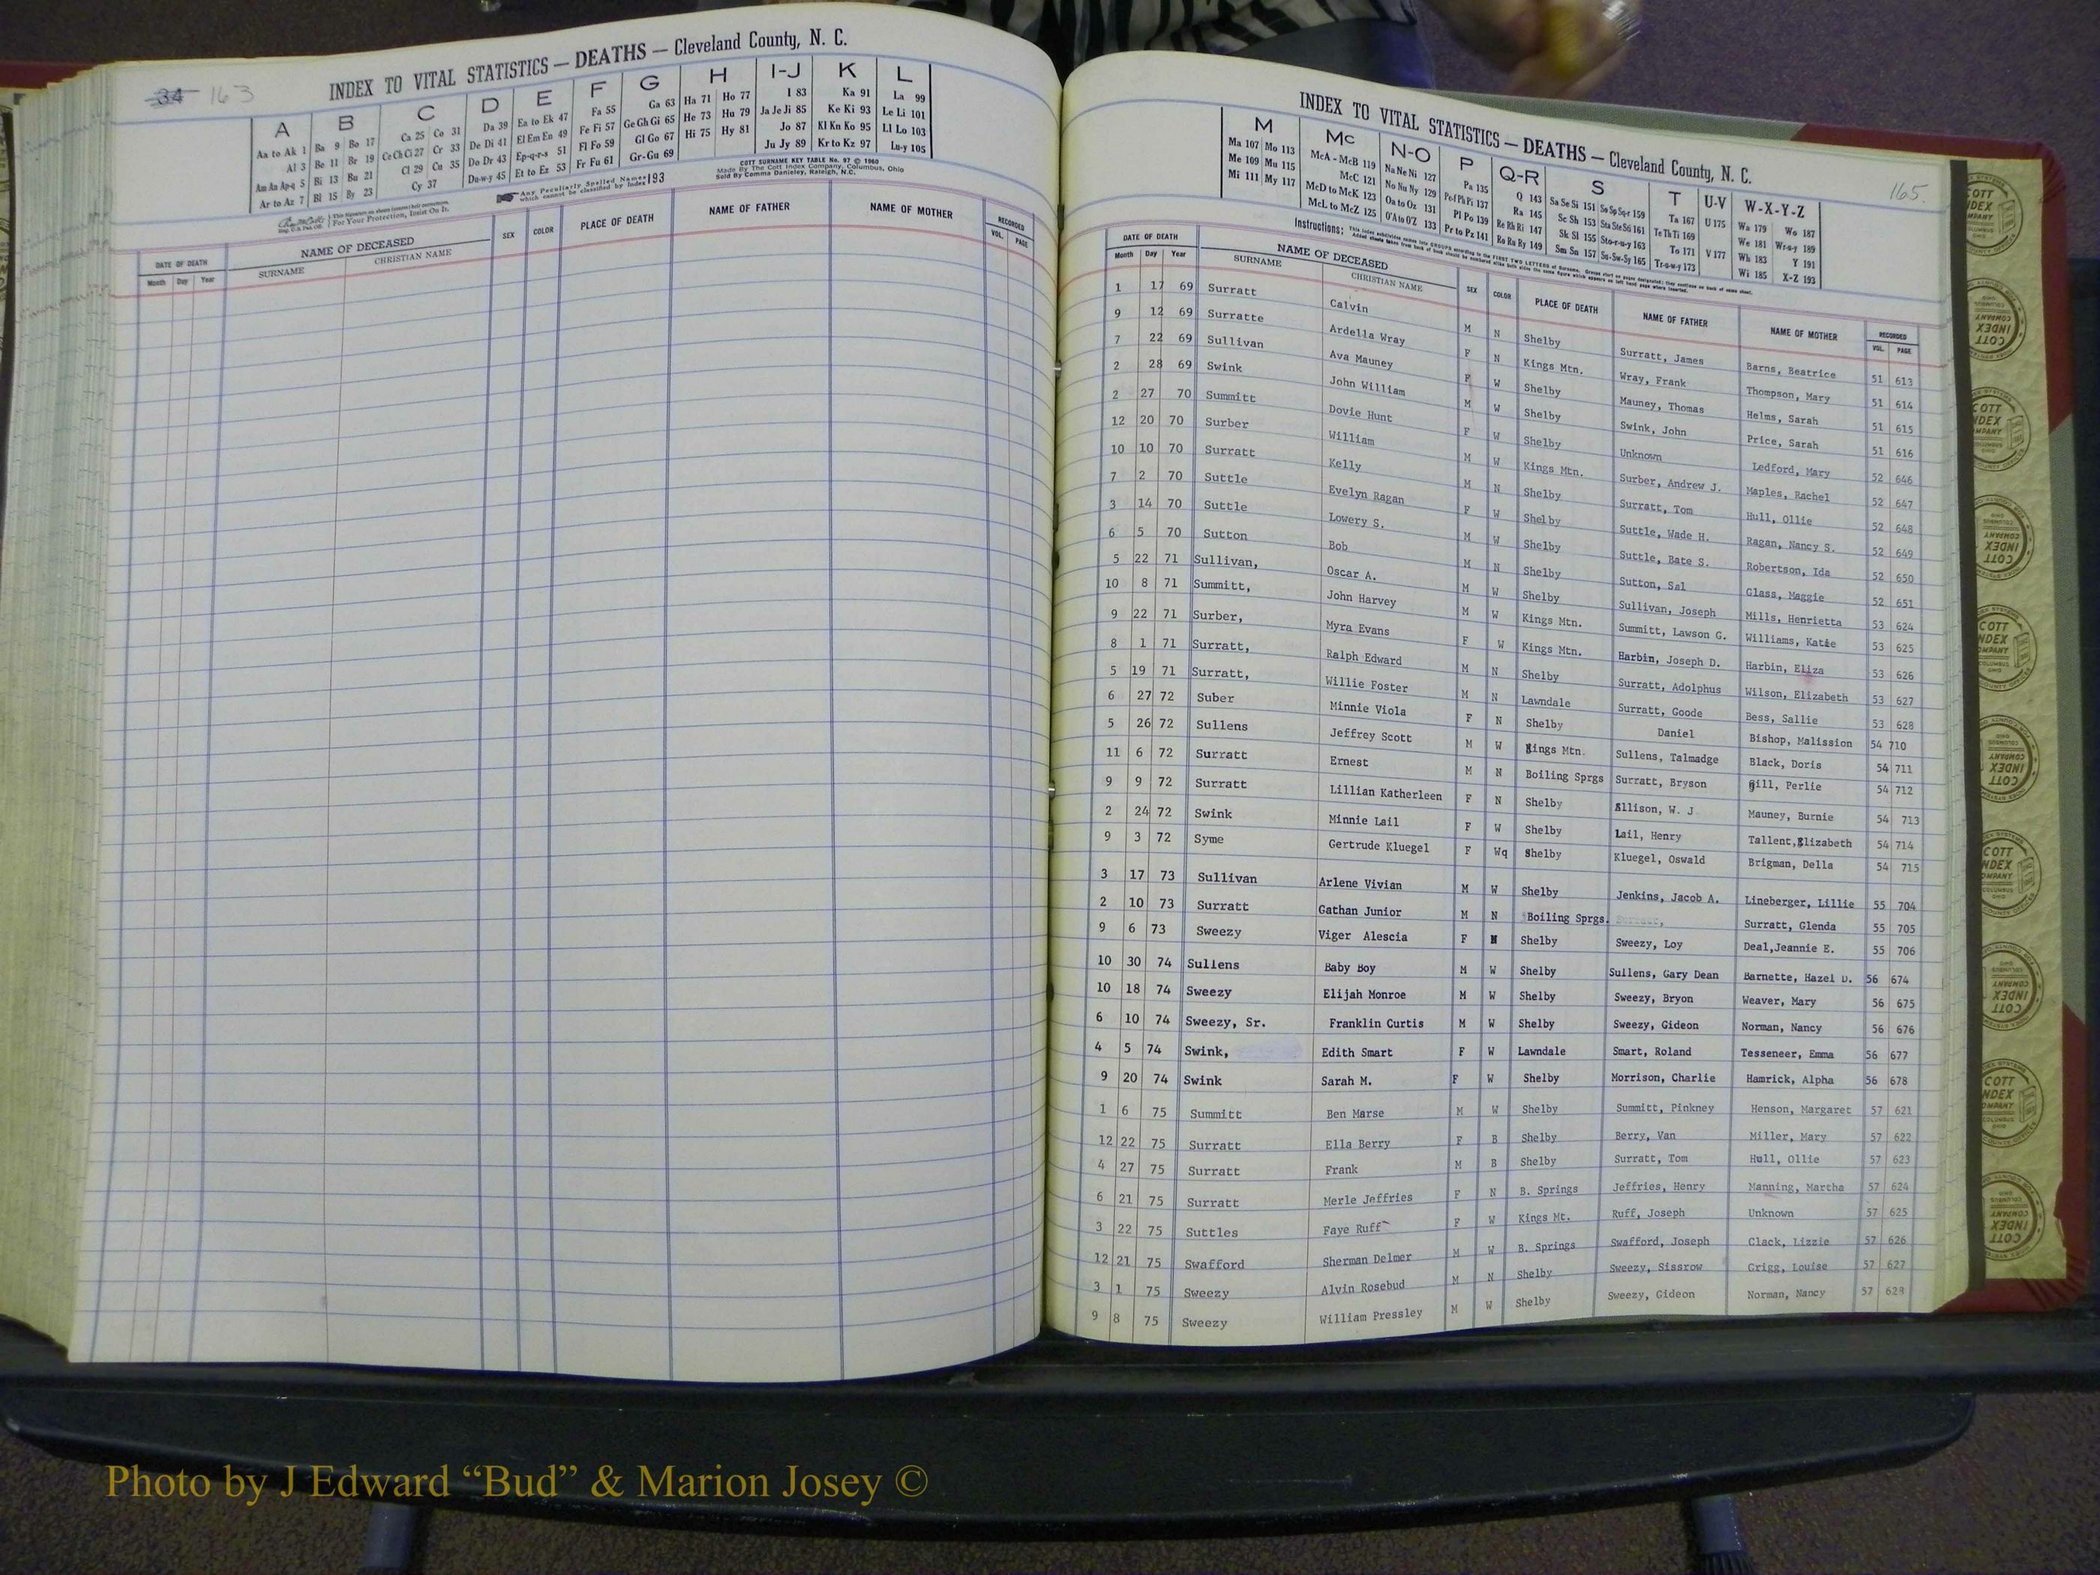 34 163
INDEX TO VITAL STATISTICS — DEATHS — Cleveland County, N. C.
A B C D E F G H I-J K L
Aa to Ak 1 Ba 9 Bo 17 Ca 25 Co 31 Da 39 Ea to Ek 47 Fa 55 Ga 63 Ha 71 Ho 77 I 83 Ka 91 La 99
Al 3 Be 11 Br 19 Ce Ch Ci 27 Cr 33 De Di 41 El Em En 49 Fe Fi 57 Ge Gh Gi 65 He 73 Hu 79 Ja Je Ji 85 Ke Ki 93 Le Li 101
Am An Ap-q 5 Bi 13 Bu 21 Cl 29 Cu 35 Do Dr 43 Ep-q-r-s 51 Fl Fo 59 Gl Go 67 Hi 75 Hy 81 Jo 87 Kl Kn Ko 95 Ll Lo 103
Ar to Az 7 Bl 15 By 23 Cy 37 Du-w-y 45 Et to Ez 53 Fr Fu 61 Gr-Gu 69 Ju Jy 89 Kr to Kz 97 Lu-y 105
For Your Protection, Insist On It.
Any, Peculiarly Spelled Names which cannot be classified by Index 193
COTT SURNAME KEY TABLE No. 97 © 1960
Made By The Cott Index Company, Columbus, Ohio
Sold By Comma Danieley, Raleigh, N.C.
DATE OF DEATH NAME OF DECEASED SEX COLOR PLACE OF DEATH NAME OF FATHER NAME OF MOTHER RECORDED
Month Day Year SURNAME CHRISTIAN NAME VOL. PAGE
INDEX TO VITAL STATISTICS — DEATHS — Cleveland County, N. C.
165.
M Mc N-O P Q-R S T U-V W-X-Y-Z
Ma 107 Mo 113 McA - McB 119 Na Ne Ni 127 Pa 135 Q 143 Sa Se Si 151 So Sp Sq-r 159 Ta 167 U 175 Wa 179 Wo 187
Me 109 Mu 115 McC 121 No Nu Ny 129 Pe-f Ph Pi 137 Ra 145 Sc Sh 153 Sta Ste Sti 161 Te Th Ti 169 We 181 Wr-u-y 189
Mi 111 My 117 McD to McK 123 Oa to Oz 131 Pl Po 139 Re Rh Ri 147 Sk Sl 155 Sto-r-u-y 163 To 171 V 177 Wh 183 Y 191
McL to McZ 125 O'A to O'Z 133 Pr to Pz 141 Ro Ru Ry 149 Sm Sn 157 Su-Sw-Sy 165 Tr-u-w-y 173 Wi 185 X-Z 193
Instructions:
DATE OF DEATH NAME OF DECEASED SEX COLOR PLACE OF DEATH NAME OF FATHER NAME OF MOTHER RECORDED
Month Day Year SURNAME CHRISTIAN NAME VOL. PAGE
1 17 69 Surratt Calvin M N Shelby Surratt, James Barns, Beatrice 51 613
9 12 69 Surratte Ardella Wray F N Kings Mtn. Wray, Frank Thompson, Mary 51 614
7 22 69 Sullivan Ava Mauney F W Shelby Mauney, Thomas Helms, Sarah 51 615
2 28 69 Swink John William M W Shelby Swink, John Price, Sarah 51 616
2 27 70 Summitt Dovie Hunt F W Shelby Unknown Ledford, Mary 52 646
12 20 70 Surber William M W Kings Mtn. Surber, Andrew J. Maples, Rachel 52 647
10 10 70 Surratt Kelly M N Shelby Surratt, Tom Hull, Ollie 52 648
7 2 70 Suttle Evelyn Ragan F W Shelby Suttle, Wade H. Ragan, Nancy S. 52 649
3 14 70 Suttle Lowery S. M W Shelby Suttle, Bate S. Robertson, Ida 52 650
6 5 70 Sutton Bob M N Shelby Sutton, Sal Glass, Maggie 52 651
5 22 71 Sullivan, Oscar A. M W Shelby Sullivan, Joseph Mills, Henrietta 53 624
10 8 71 Summitt, John Harvey M W Kings Mtn. Summitt, Lawson G. Williams, Katie 53 625
9 22 71 Surber, Myra Evans F W Kings Mtn. Harbin, Joseph D. Harbin, Eliza 53 626
8 1 71 Surratt, Ralph Edward M N Shelby Surratt, Adolphus Wilson, Elizabeth 53 627
5 19 71 Surratt, Willie Foster M N Lawndale Surratt, Goode Bess, Sallie 53 628
6 27 72 Suber Minnie Viola F N Shelby Daniel Bishop, Malission 54 710
5 26 72 Sullens Jeffrey Scott M W Kings Mtn. Sullens, Talmadge Black, Doris 54 711
11 6 72 Surratt Ernest M N Boiling Sprgs Surratt, Bryson Gill, Perlie 54 712
9 9 72 Surratt Lillian Katherleen F N Shelby Ellison, W. J Mauney, Burnie 54 713
2 24 72 Swink Minnie Lail F W Shelby Lail, Henry Tallent, Elizabeth 54 714
9 3 72 Syme Gertrude Kluegel F Wq Shelby Kluegel, Oswald Brigman, Della 54 715
3 17 73 Sullivan Arlene Vivian M W Shelby Jenkins, Jacob A. Lineberger, Lillie 55 704
2 10 73 Surratt Gathan Junior M N Boiling Sprgs. Surratt, Glenda 55 705
9 6 73 Sweezy Viger Alescia F N Shelby Sweezy, Loy Deal,Jeannie E. 55 706
10 30 74 Sullens Baby Boy M W Shelby Sullens, Gary Dean Barnette, Hazel D. 56 674
10 18 74 Sweezy Elijah Monroe M W Shelby Sweezy, Bryon Weaver, Mary 56 675
6 10 74 Sweezy, Sr. Franklin Curtis M W Shelby Sweezy, Gideon Norman, Nancy 56 676
4 5 74 Swink, Edith Smart F W Lawndale Smart, Roland Tesseneer, Emma 56 677
9 20 74 Swink Sarah M. F W Shelby Morrison, Charlie Hamrick, Alpha 56 678
1 6 75 Summitt Ben Marse M W Shelby Summitt, Pinkney Henson, Margaret 57 621
12 22 75 Surratt Ella Berry F B Shelby Berry, Van Miller, Mary 57 622
4 27 75 Surratt Frank M B Shelby Surratt, Tom Hull, Ollie 57 623
6 21 75 Surratt Merle Jeffries F N B. Springs Jeffries, Henry Manning, Martha 57 624
3 22 75 Suttles Faye Ruff F W Kings Mt. Ruff, Joseph Unknown 57 625
12 21 75 Swafford Sherman Delmer M W B. Springs Swafford, Joseph Clack, Lizzie 57 626
3 1 75 Sweezy Alvin Rosebud M N Shelby Sweezy, Sissrow Grigg, Louise 57 627
9 8 75 Sweezy William Pressley M W Shelby Sweezy, Gideon Norman, Nancy 57 628
Photo by J Edward “Bud” & Marion Josey ©